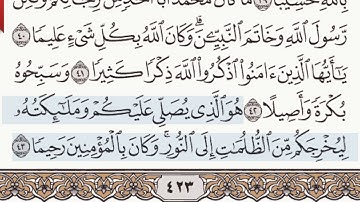 بِٱللَّهِ حَسِيبًا ٣٩ مَّا كَانَ مُحَمَّدٌ أَبَآ أَحَدٍ مِّن رِّجَالِكُمْ وَلَٰكِن
رَّسُولَ ٱللَّهِ وَخَاتَمَ ٱلنَّبِيِّـۧنَۗ وَكَانَ ٱللَّهُ بِكُلِّ شَىْءٍ عَلِيمًا ٤٠
يَٰٓأَيُّهَا ٱلَّذِينَ ءَامَنُوا۟ ٱذْكُرُوا۟ ٱللَّهَ ذِكْرًا كَثِيرًا ٤١ وَسَبِّحُوهُ
بُكْرَةً وَأَصِيلًا ٤٢ هُوَ ٱلَّذِى يُصَلِّى عَلَيْكُمْ وَمَلَٰٓئِكَتُهُۥ
لِيُخْرِجَكُم مِّنَ ٱلظُّلُمَٰتِ إِلَى ٱلنُّورِۚ وَكَانَ بِٱلْمُؤْمِنِينَ رَحِيمًا ٤٣
٤٢٣